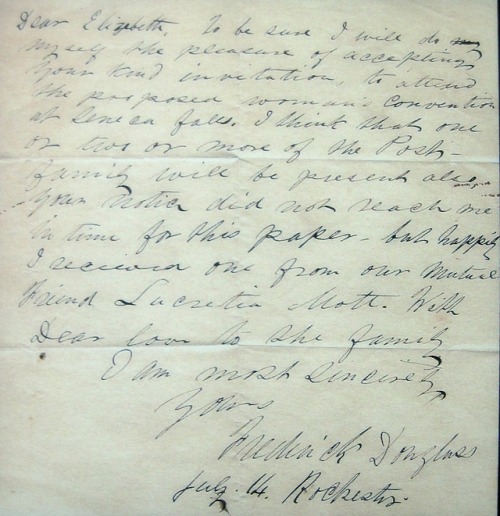 Dear Elizabeth, To be sure I will do my
myself the pleasure of accepting
your kind invitation, to attend
the proposed woman's convention
at Seneca falls. I think that one
or two or more of the Post-
family will be present also.
Your notice did not reach me
in time for this paper - but happily
I received one from our mutual
Friend Lucretia Mott. With
Dear love to the family
I am most sincerely
Yours
Frederick Douglass
July. 14. Rochester.